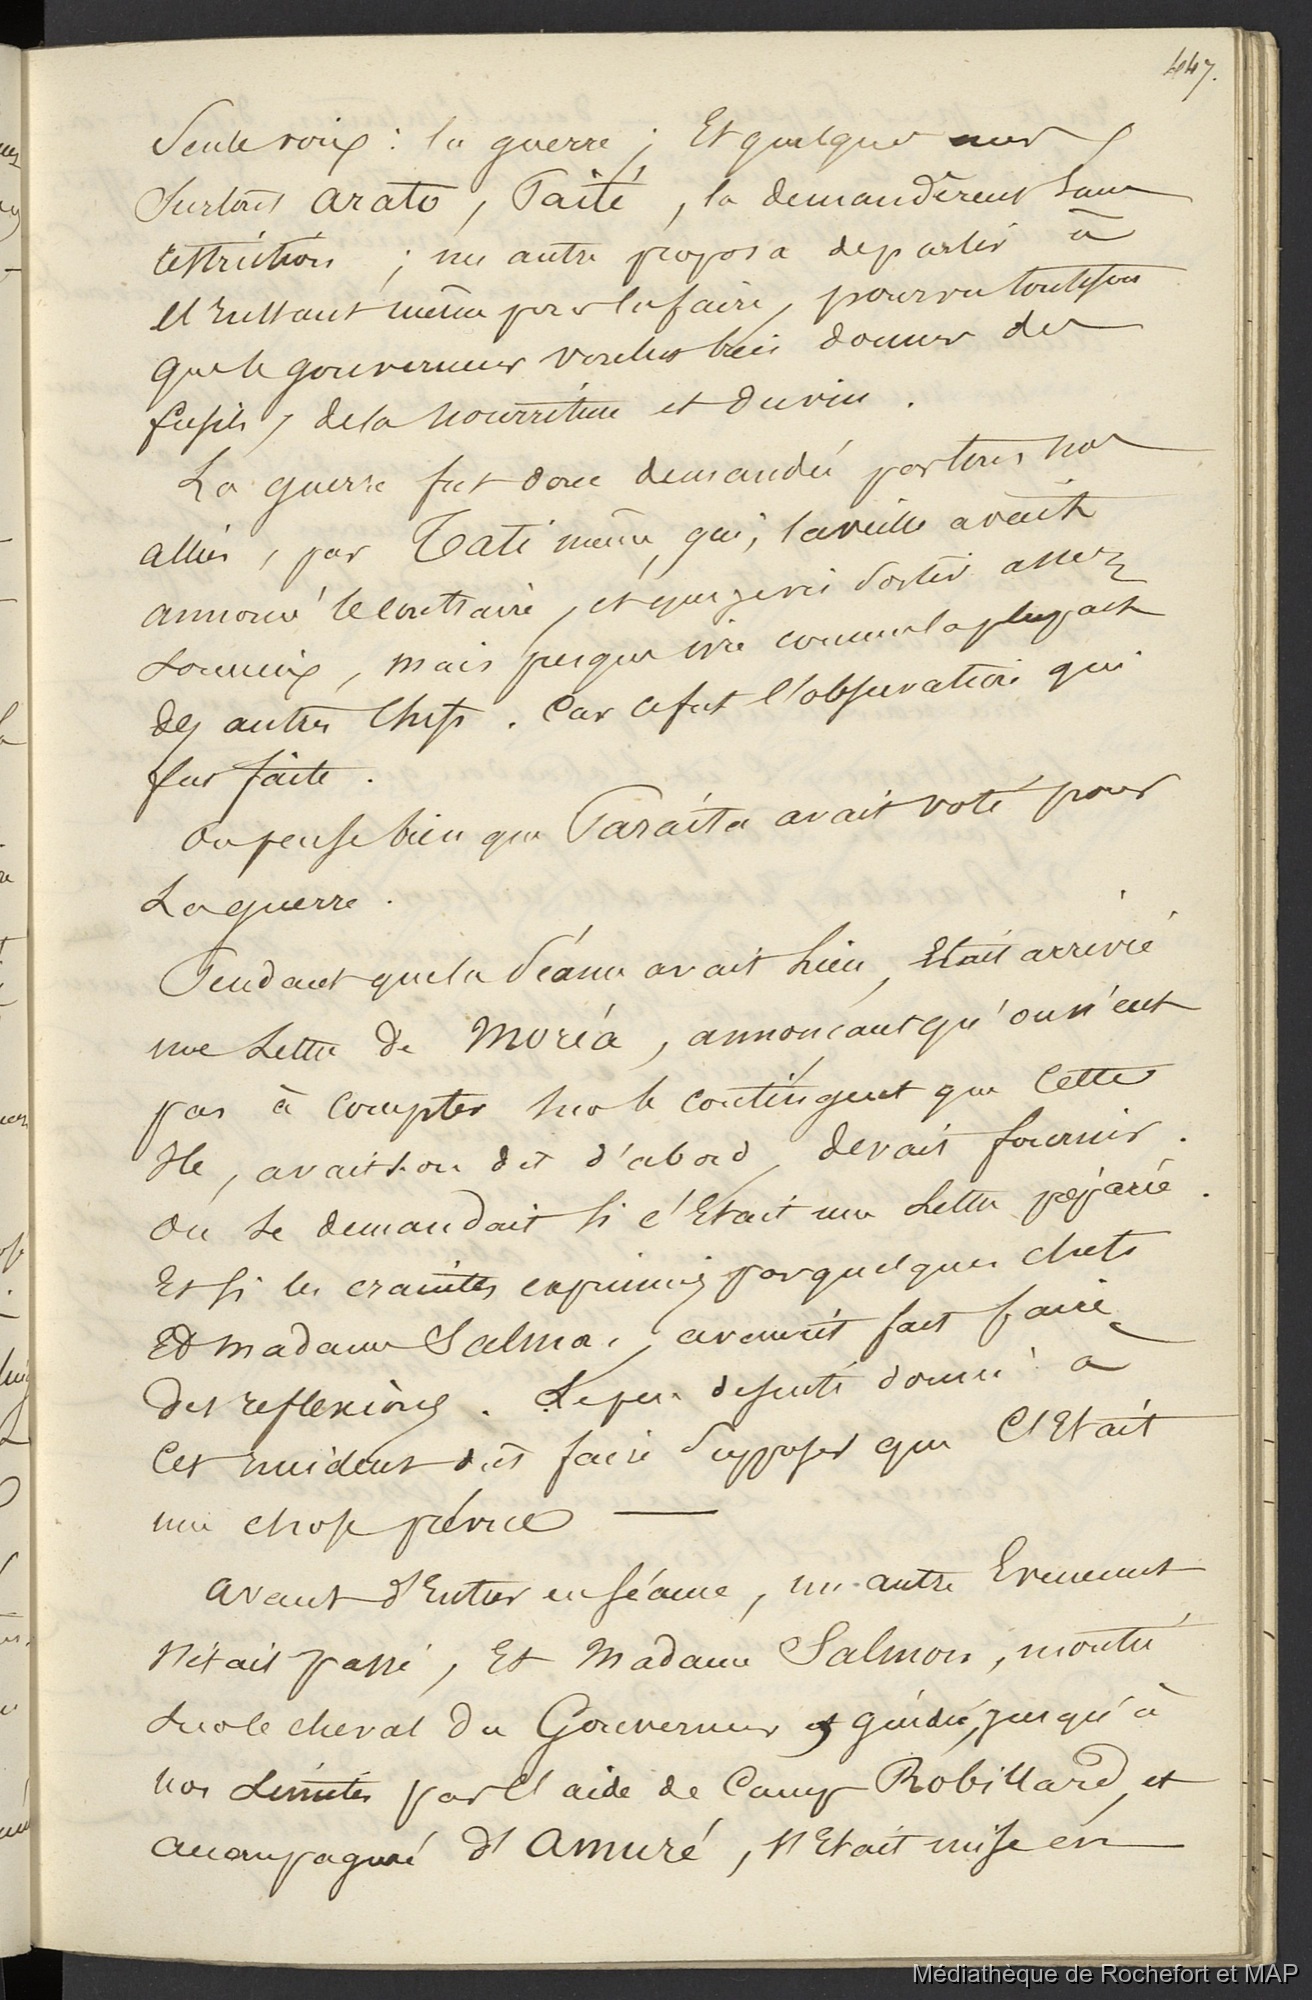 447.
Seule voix : la guerre ; Et quelques uns
Surtout Arato, Taïté, la demandèrent sans
restriction ; un autre proposa de partir à
l'Instant même pour la faire, pourvu toutefois
que le gouverneur voulut bien donner des
fusils, de la nourriture et du vin.
La guerre fut donc demandée par tous nos
alliés, par Tati même, qui, la veille avait
annoncé le contraire, et que je vis sortir assez
soucieux, mais presque ivre comme la plupart
des autres Chefs. Car ce fut l'observation qui
fut faite.
On pense bien que Paraita avait voté pour
La guerre.
Pendant que la séance avait lieu, Etait arrivé
une Lettre de Moréa, annonçant qu'on n'eut
pas à compter sur le contingent que cette
Ile, avait-on dit d'abord, devait fournir.
On se demandait si c'Etait une Lettre préparée.
Et si les craintes exprimées par quelques chefs
Et madame Salmon, avaient fait faire
des reflexions. Le peu de suite donné à
Cet incident dut faire supposer que C'Etait
une chose prévue —
Avant d'Entrer en séance, un autre Evenement
s'était passé, Et Madame Salmon, monté
sur le cheval du Gouverneur et guidé, jusqu'à
nos Limites par l'aide de Camp Robillard, et
accompagné d'Amuré, s'Etait mise en
Médiathèque de Rochefort et MAP